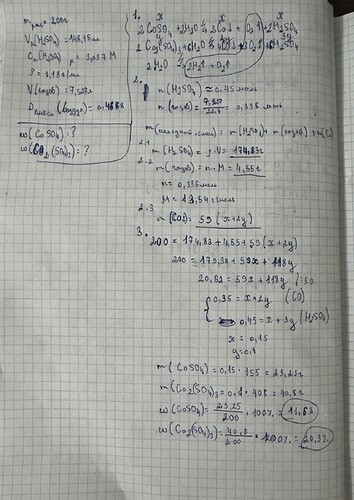 m рас = 200г
V р(H2SO4) = 148,15мл
Cм(H2SO4) p = 3,037 M
ρ = 1,18г/мл
V(газов) = 7,528л
D смеси(воздух) = 0,468
w(CoSO4) = ?
w(Co2(SO4)3) = ?
1.
x x x
2CoSO4 + 2H2O = 2Co↓ + O2↑ + 2H2SO4
y 2y 3y
2Co2(SO4)3 + 6H2O = 4Co↓ + 3O2↑ + 6H2SO4
2H2O = 2H2↑ + O2↑
2.
n(H2SO4) ≈ 0,45 моль
n(газов) = 7,527/22,4 = 0,336 моль
m(исходной смеси) = m(H2SO4) + m(газов) + m(Co)
2.1
m(H2SO4) = ρ·V = 174,83г
2.2
m(газов) = n·M = 4,55г
n = 0,336моль
M = 13,54 г/моль
2.3
m(Co) = 59(x+2y)
3.
200 = 174,83 + 4,55 + 59(x+2y)
200 = 179,38 + 59x + 118y
20,62 = 59x + 118y |:59
0,35 = x+2y (Co)
0,45 = x + 3y (H2SO4)
x = 0,15
y = 0,1
m(CoSO4) = 0,15 · 155 = 23,25г
m(Co2(SO4)3 = 0,1 · 406 = 40,6г
w(CoSO4) = 23,25/200 · 100% = 11,6%
w(Co2(SO4)3) = 40,6/200 · 100% = 20,3%